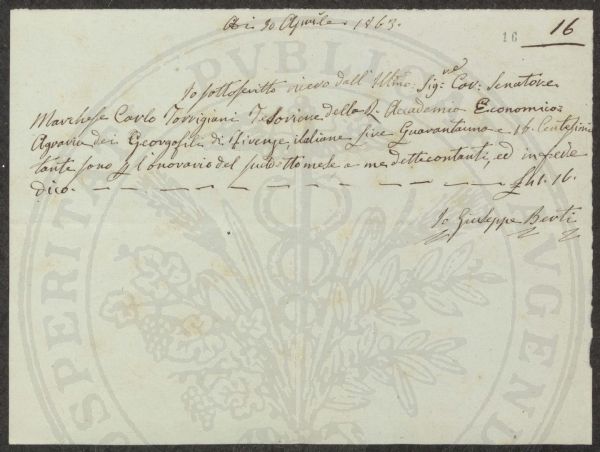 Adi 30 Aprile 1863.
16 16
Io sottoscritto ricevo dall' Illmo. Sig:re Cav: Senatore
Marchese Carlo Torrigiani Tesoriere della R. Accademia Economico=
Agraria dei Georgofili di Firenze, italiane Lire Quarantuna e 16 Centesimi
tante sono p l'onorario del sud:otto mese a me dette contanti, ed in fede
dico. — — — — — — — — — £ 41. 16.
Io Giuseppe Berti
PROSPERITATI PVBLICAE AVGENDAE